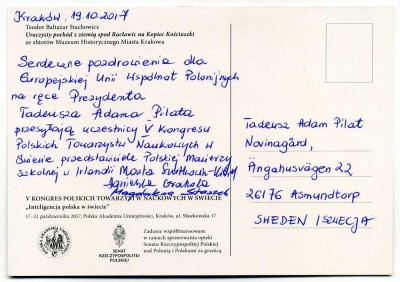 Kraków, 19.10.2017
Teodor Baltazar Stachowicz
Uroczysty pochód z ziemią spod Racławic na Kopiec Kościuszki
ze zbiorów Muzeum Historycznego Miasta Krakowa
Serdeczne pozdrowienia dla
Europejskiej Unii Wspólnot Polonijnych
na ręce Prezydenta
Tadeusza Adama Pilata
przesyłają uczestnicy V Kongresu
Polskich Towarzystw Naukowych w
Świecie przedstawiciele Polskiej Macierzy
Szkolnej w Irlandii
Agnieszka
Magdalena
V KONGRES POLSKICH TOWARZYSTW NAUKOWYCH W ŚWIECIE
"Inteligencja polska w świecie"
17-21 października 2017, Polska Akademia Umiejętności, Kraków, ul. Sławkowska 17
SENAT
RZECZYPOSPOLITEJ
POLSKIEJ
Zadanie współfinansowane
w ramach sprawowania opieki
Senatu Rzeczypospolitej Polskiej
nad Polonią i Polakami za granicą
Tadeusz Adam Pilat
Novinagård,
Ängahusvägen 22
26176 Asmundtorp
SWEDEN / SZWECJA